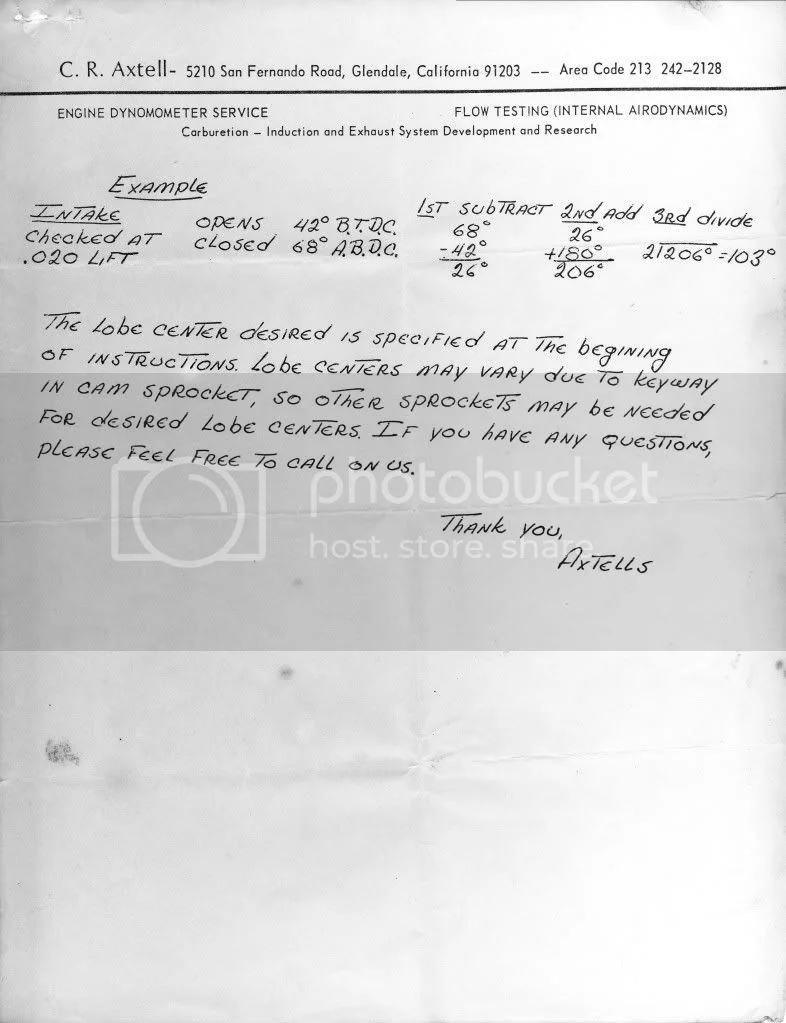 C. R. Axtell- 5210 San Fernando Road, Glendale, California 91203 -- Area Code 213 242-2128
ENGINE DYNOMOMETER SERVICE FLOW TESTING (INTERNAL AIRODYNAMICS)
Carburetion - Induction and Exhaust System Development and Research
EXAMPLE
INTAKE OPENS 42° B.T.D.C. 1ST SUBTRACT 2nd Add 3Rd divide
CHECKED AT CLOSED 68° A.B.D.C. 68° 26° 2/206° = 103°
.020 LIFT -42° +180°
26° 206°
THE LOBE CENTER DESIRED IS SPECIFIED AT THE BEGINING
OF INSTRUCTIONS. LOBE CENTERS MAY VARY DUE TO KEYWAY
IN CAM SPROCKET, SO OTHER SPROCKETS MAY BE NEEDED
FOR DESIRED LOBE CENTERS. IF YOU HAVE ANY QUESTIONS,
PLEASE FEEL FREE TO CALL ON US.
photobucket
host. store. share.
THANK YOU,
AXTELLS